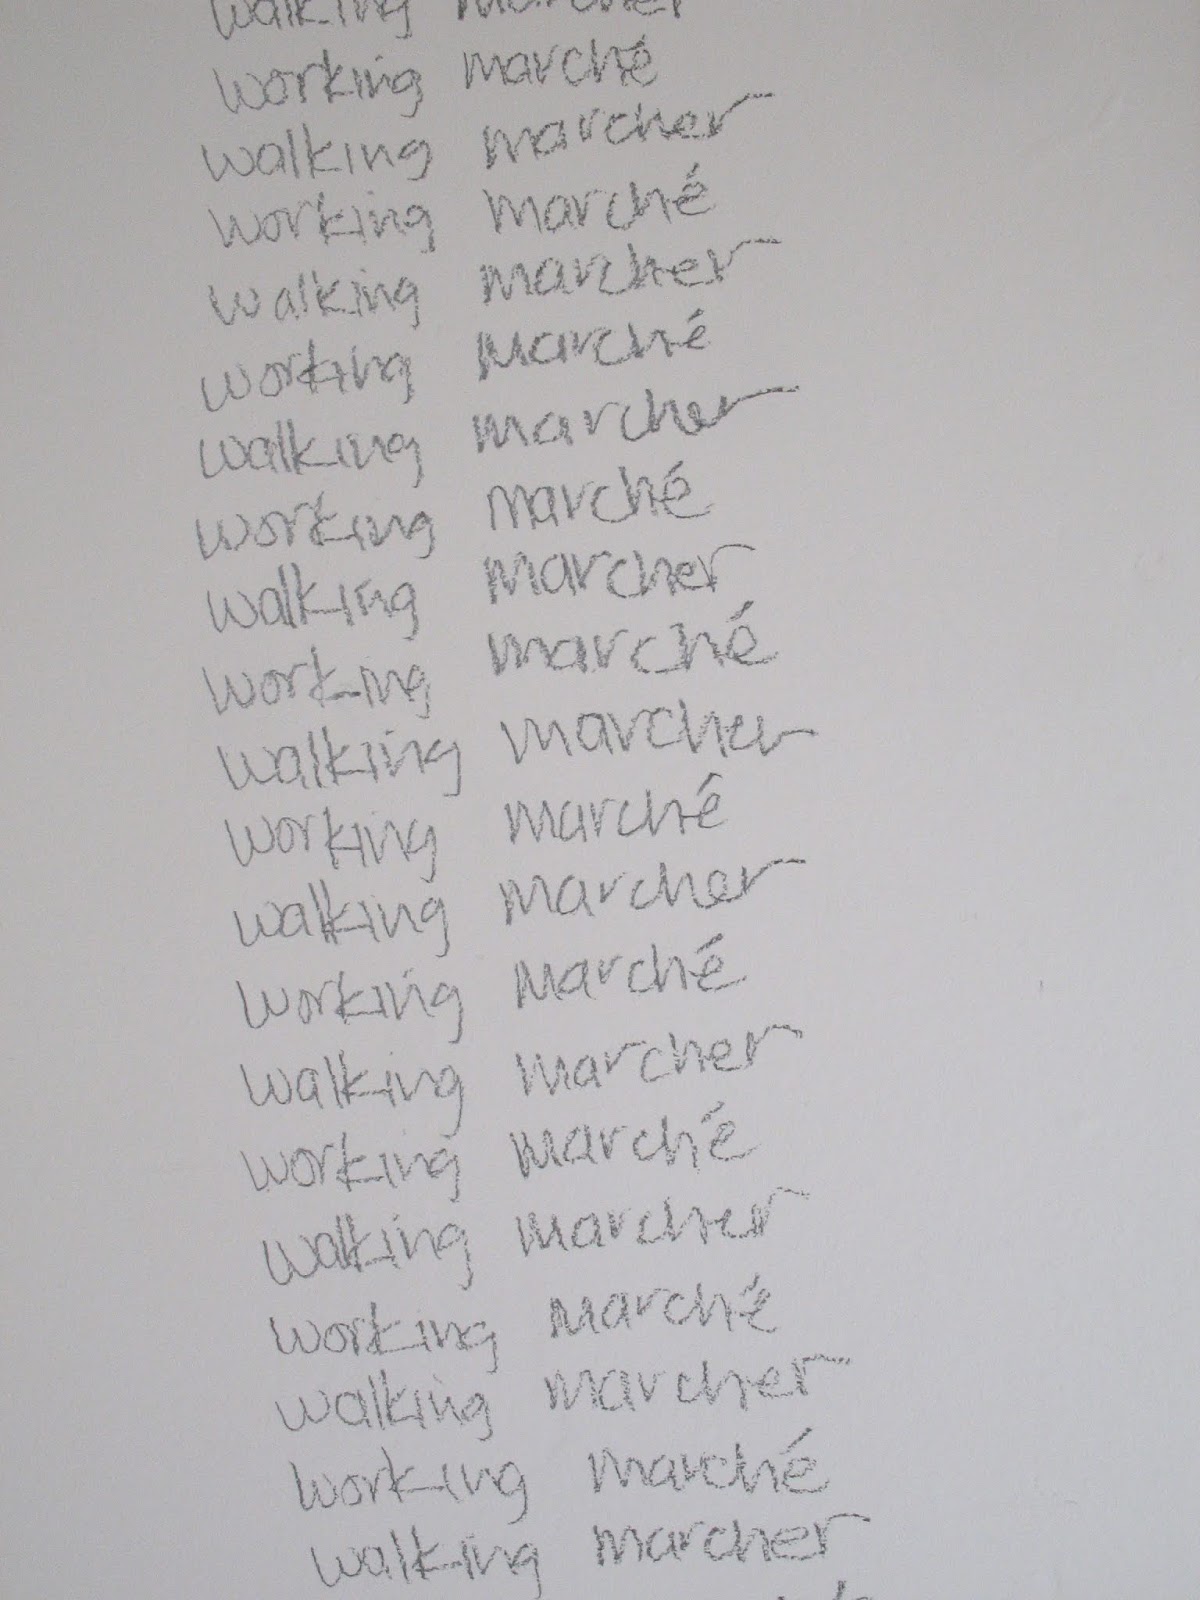 walking marcher
working marché
walking marcher
working marché
walking marcher
working marché
walking marcher
working marché
walking marcher
working marché
walking marcher
working marché
walking marcher
working marché
walking marcher
working marché
walking marcher
working marché
walking marcher
working marché
walking marcher